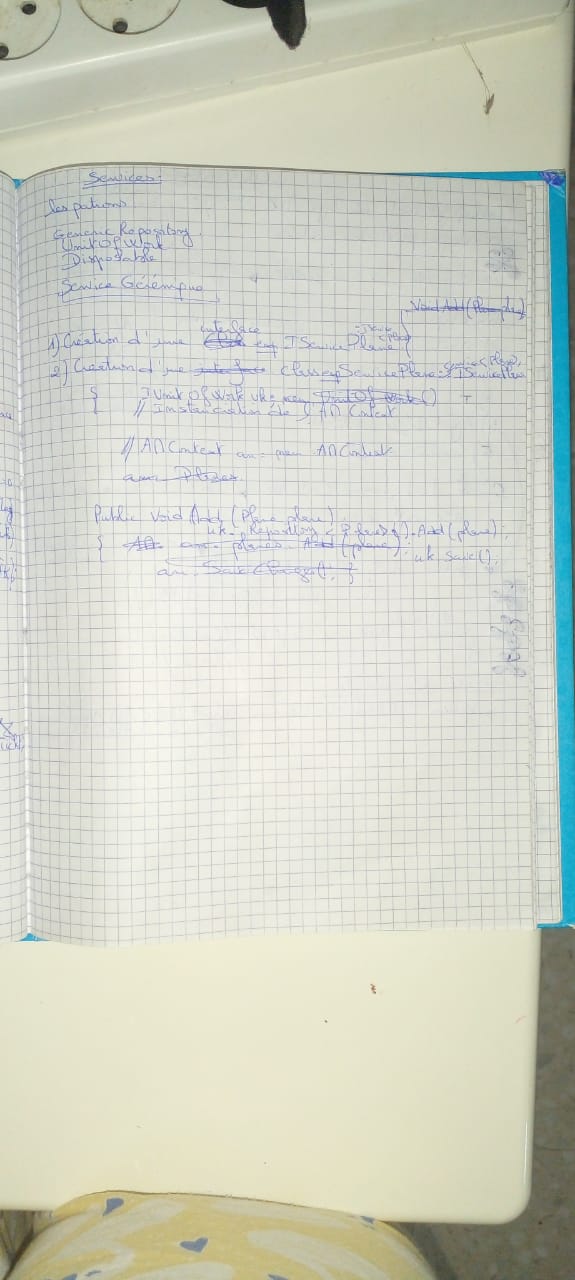 Services:
les patrons
Generic Repository
Unit Of Work
Disposable
Service Générique
Void Add (Plane plane)
interface
1) Création d'une exp IServicePlane : IService<Plane>
2) Création d'une classe exp ServicePlane : Service<Plane>, IServicePlane
{ IUnit Of Work uk = new Unit Of Work ()
// Instanciation de AM Context
// AM Context am = new AM Context
am. Planes
Public Void Add (Plane plane)
uk. Repository < Plane> (). Add (plane);
{ am. planes. Add (plane); uk save();
am. Save Changes(); }